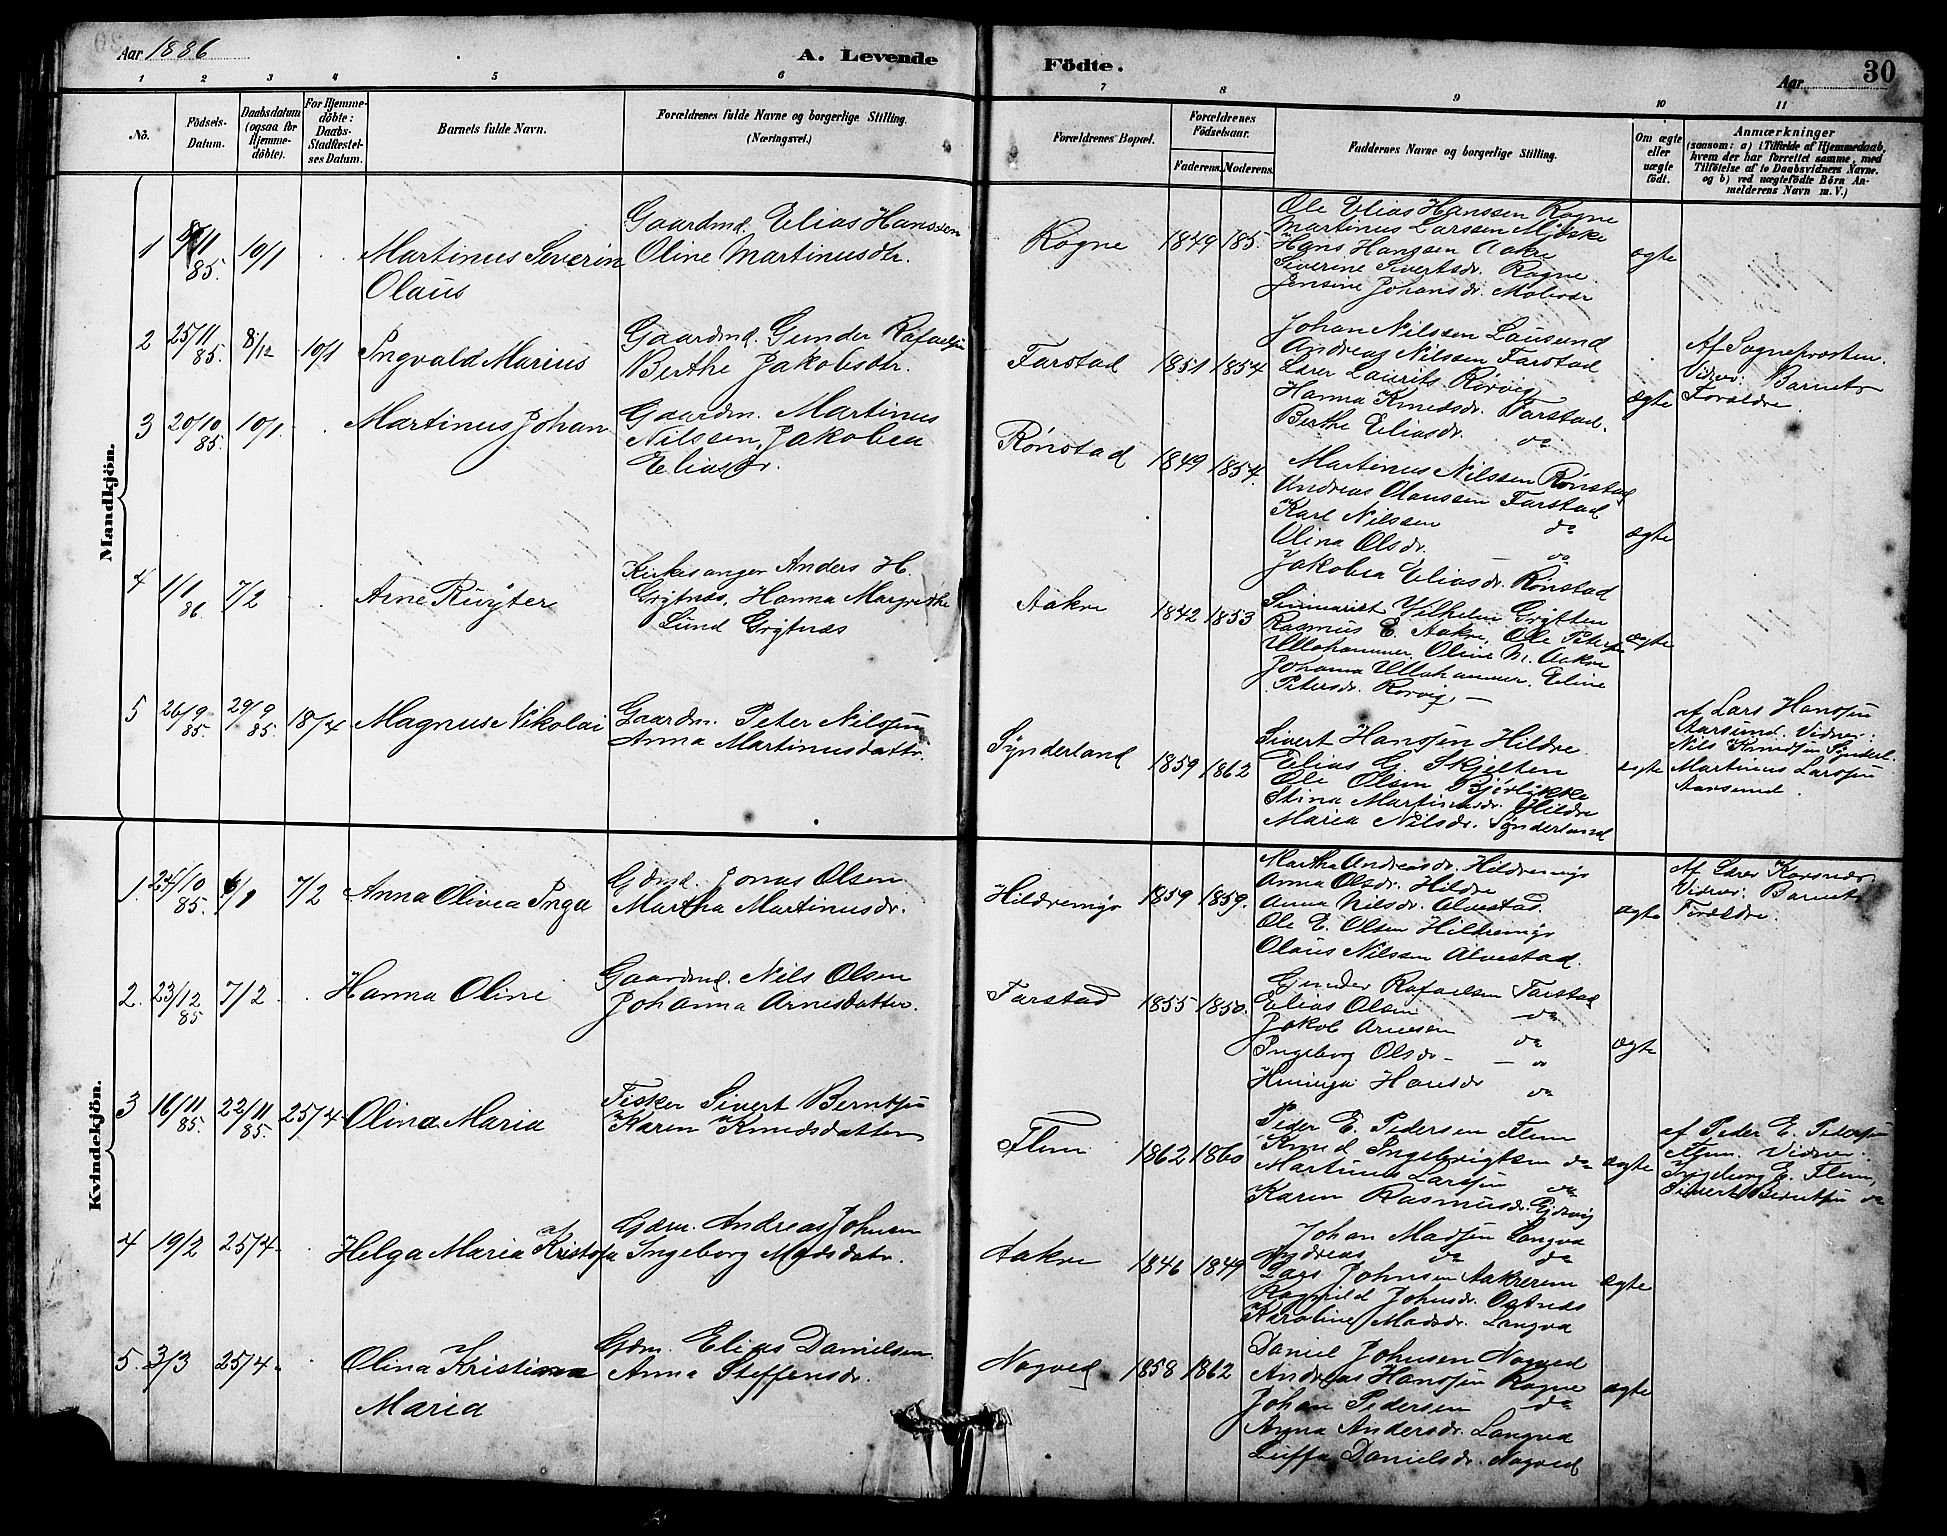 Aar 1886
A. Levende Födte.
Aar
30
1 2 3 4 5 6 7 8 9 10 11
No.
Födsels-Datum.
Daabsdatum (ogsaa for Hjemme-döbte).
For Hjemme-döbte: Daabs-Stadfæstel-ses Datum.
Barnets fulde Navn.
Forældrenes fulde Navne og borgerlige Stilling. (Næringsvei.)
Forældrenes Bopæl.
Forældrenes Födselsaar.
Faderens. Moderens.
Faddernes Navne og borgerlige Stilling.
Om ægte eller uægte födt.
Anmærkninger
(saasom: a) i Tilfælde af Hjemmedaab,
hvem der har forrettet samme, med
Tilföielse af to Daabsvidners Navne.
og b) ved uægtefödte Börn An-
melderens Navn m. V.)
Mandkjön.
1 /11 85. 10/1
Martinus Severin
Olaus
Gaardmd. Elias Hanssen
Oline Martinusdtr.
Rogne 1849 185
Ole Elias Hanssen Rogne
Martinus Larssen Mjøske
Hans Hanssen Aakre
Severine Sivertsdr. Rogne
Jensine Johansdr.
ægte
2 25/11 85. 8/12 10/1
Ingvald Marius
Gaardmd. Gunder Rafaelsen
Berthe Jakobsdtr.
Farstad 1851 1854
Johan Nilssen Lausund
Andreas Nilssen Farstad
Lærer Laurits Rørvig
Hanna Knudsdr. Farstad.
Berthe Eliasdr. do
ægte
Af Sogneprosten.
Vidner: Barnets
Forældre.
3 20/10 85. 10/1
Martinus Johan
Gaardm. Martinus
Nilssen, Jakobea
Eliasdr.
Rønstad 1849 1854.
Martinus Nilssen Rønstad
Andreas Olaussen Farstad
Karl Nilssen do
Olina Olsdr. — do
Jakobea Eliasdr. Rønstad
ægte
4 1/1 86. 7/2
Arne Ruyter
Kirkesanger Anders H.
Grytnæs, Hanna Margrethe
Lund Grytnæs
Aakre 1842 1853
Seminarist Vilhelm Grytten
Rasmus E. Aakre, Ole Petersen
Ullahammer, Oline M. Aakre
Johanna Ullahammer. Eline
Petersdr. Rørvig —
ægte
5 26/9 85. 29/9 85. 18/4
Magnus Nikolai
Gaardm. Peter Nilssen
Anna Martinusdattr.
Synderland 1859 1862
Sivert Hanssen Hildre
Elias G. Skjelten
Ole Olsen Bjørlikke
Stina Martinusdr. Hildre
Maria Nilsdr. Synderland
ægte
af Lars Hanssen
Aarsund. Vidner:
Nils Knudsen Synderl.
Martinus Larssen
Aarsund.
Kvindekjön.
1. 25/10 85. 6/1 7/2
Anna Olivea Inga
Gdmd. Jonas Olsen
Martha Martinusdr.
1859 1859.
Martha Andreasdr.
Anna Olsdr. Hildre
Anna Nilsdr. Alvestad.
Ole E. Olsen
Olaus Nilssen Alvestad.
ægte
Af Lærer
Vidner: Barnets
Forældre.
2. 23/12 85 7/2
Hanna Oline
Gaardmd. Nils Olsen
Johanna Arnesdatter.
Farstad 1855 1850.
Gunder Rafaelsen Farstad
Elias Olsen do
Jakob Arnesen do
Ingeborg Olsdr — do
Hansdr do
ægte
3 16/11 85. 22/11 85. 25/4
Olina Maria
Fisker Sivert Berntsen
Karen Knudsdatter
Flem 1862 1860
Peder E. Pedersen Flem
Knud Ingebrigtsen do
Martinus Larssen do
Karen Rasmusdr.
ægte
af Peder E. Pedersen
Flem. Vidner.
Ingeborg E. Flem,
Sivert Berntsen do
4 19/2 25/4
Helga Maria af Kristofa
Gdm. Andreas Johnsen
Ingeborg Madsdatr.
Aakre 1846 1849
Johan Madsen Langva
Andreas do do
Lars Johnsen Aakrerem
Ragnild Johnsdr. Østnes
Karoline Madsdr. Langva
ægte
5. 3/3 25/4
Olina Kristianna
Maria
Gdm. Elias Danielsen
Anna Steffensdr.
Nogved 1858 1862
Daniel Johnsen Nogved
Andreas Hanssen Rogne
Johan Pedersen do
Anna Andersdr. Langva
Danielsdr. Nogved
ægte